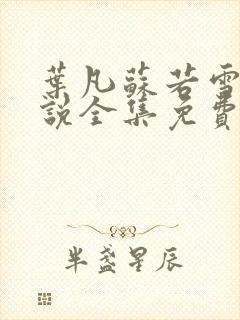 葉凡蘇若雪
說全集免費
半盞星辰